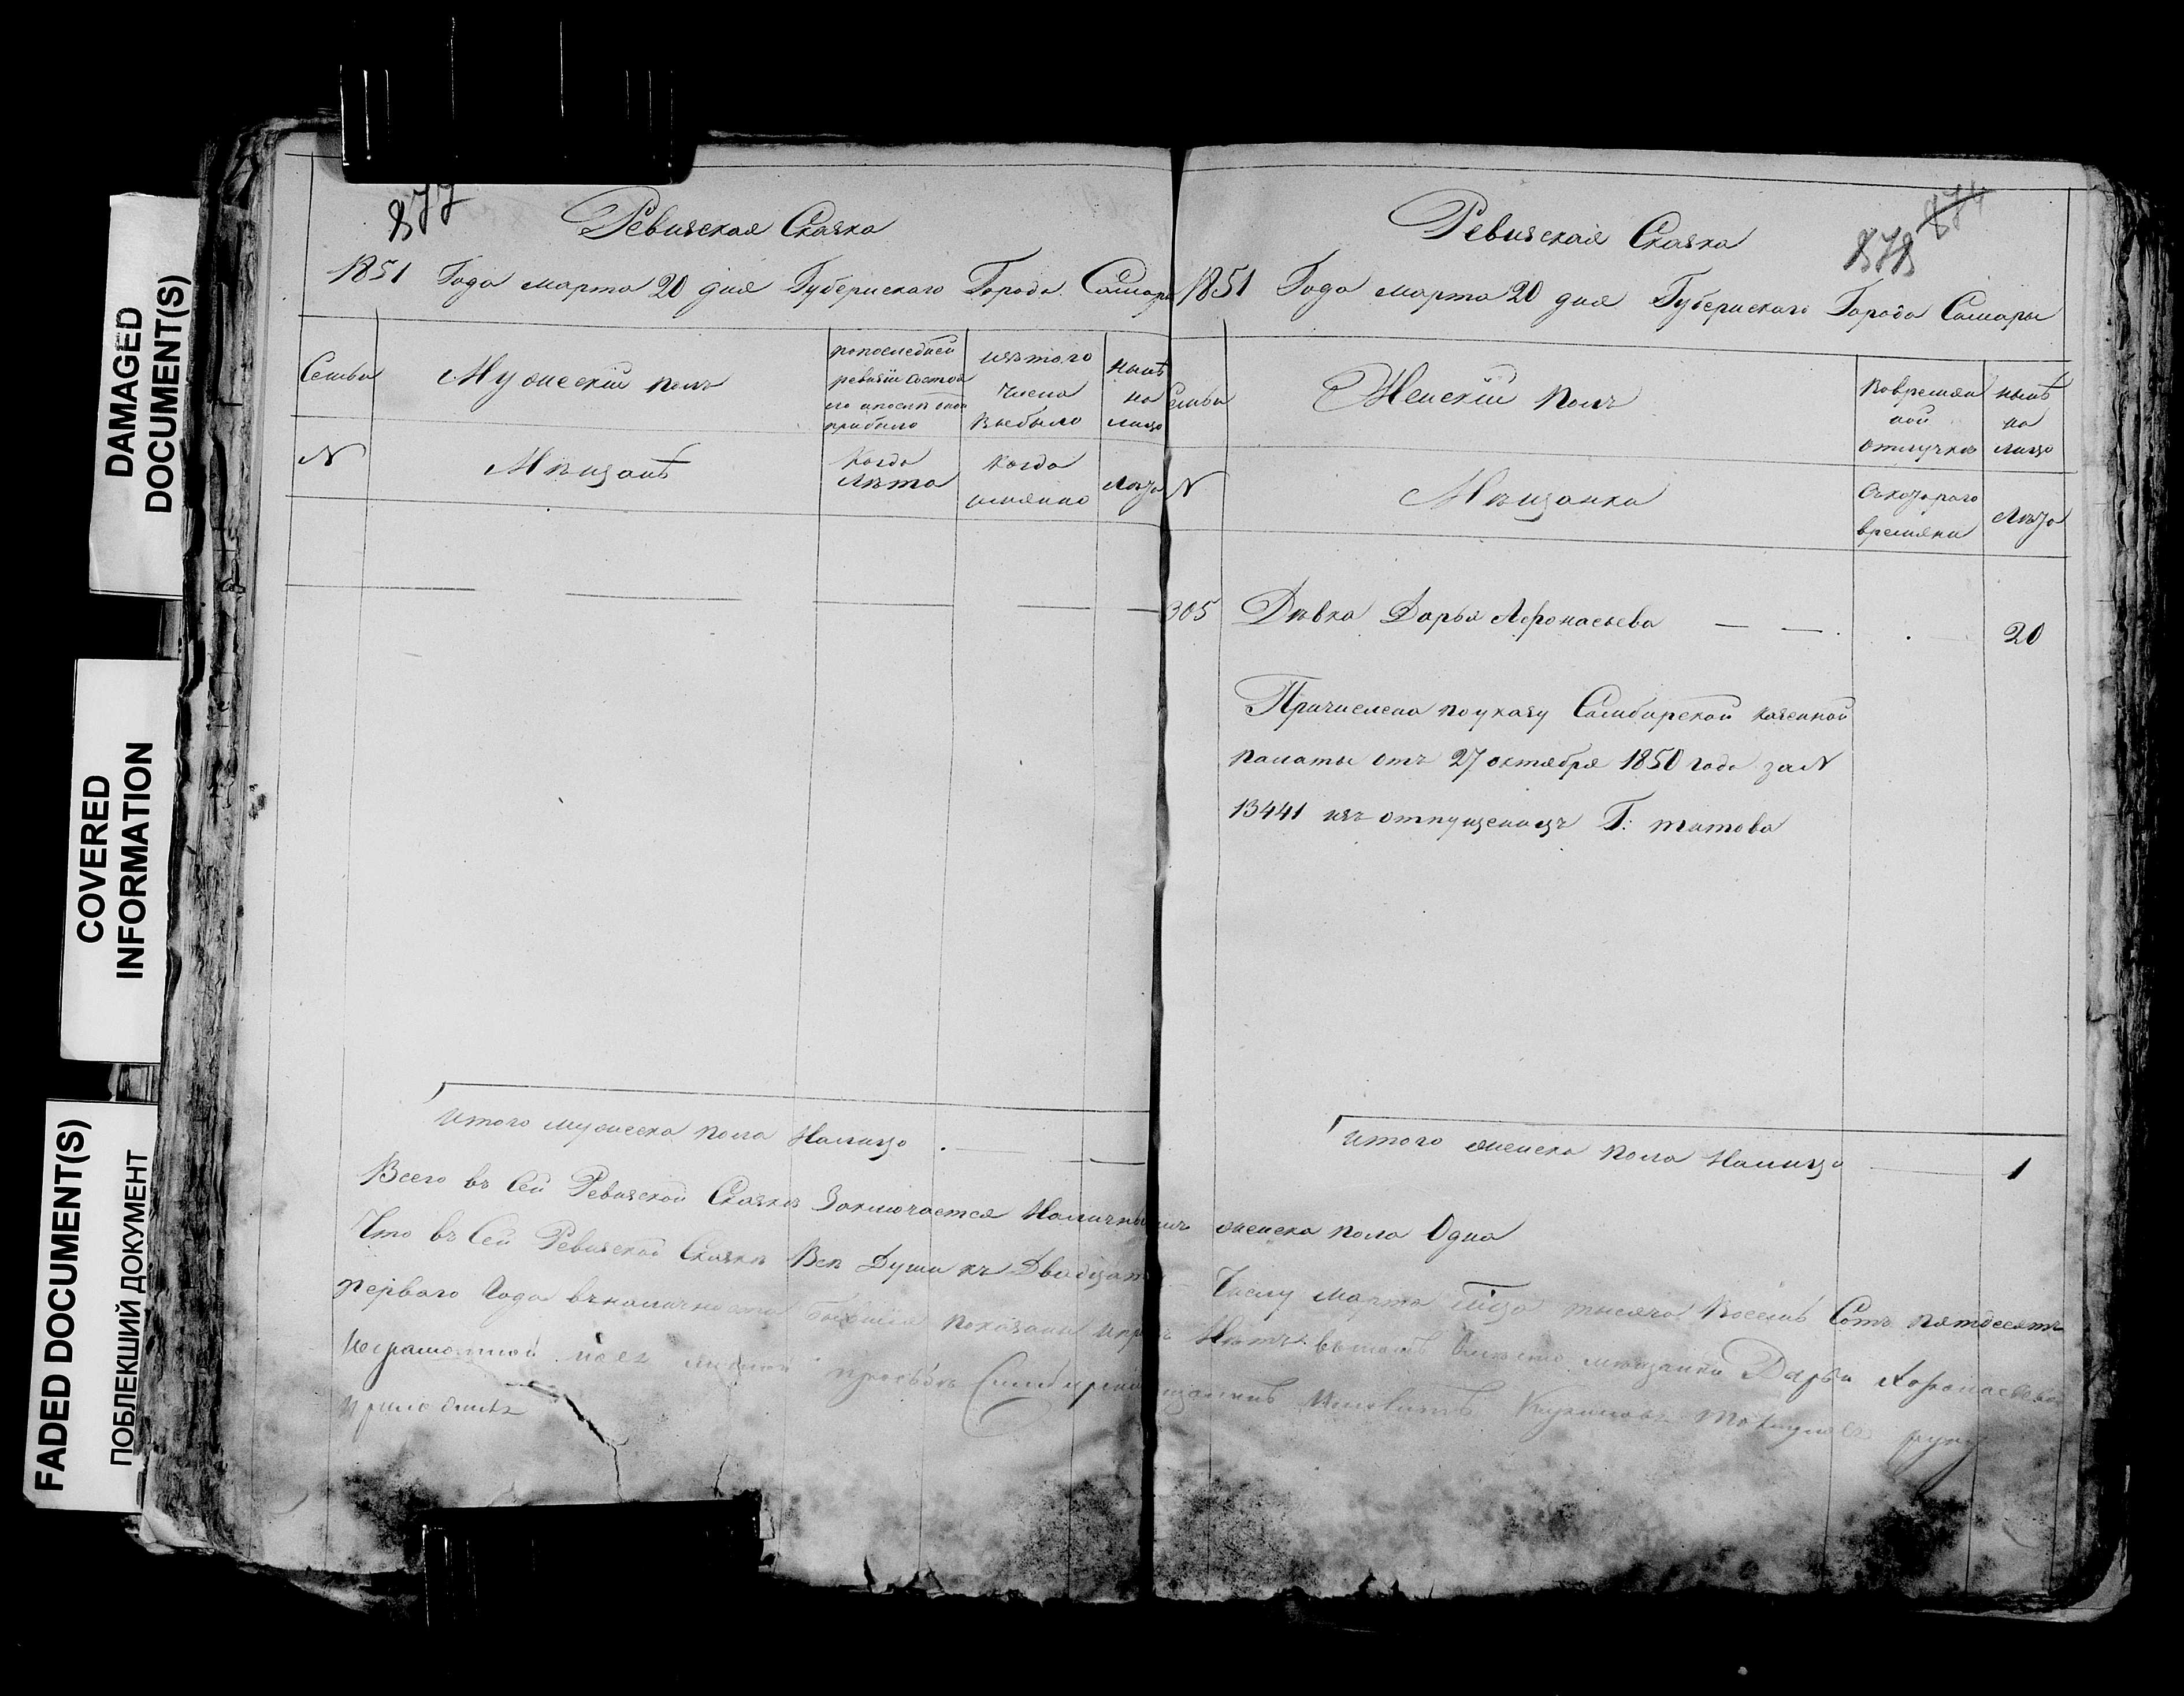 DAMAGED
DOCUMENT(S)
COVERED
INFORMATION
FADED DOCUMENT(S)
ПОБЛЕКШИЙ ДОКУМЕНТ
877
Ревизская Сказка
1851 Года марта 20 дня Губернскаго Города Самары
Семьи
Мужескій полъ
попоследней
ревизіи состоя
ло и после оной
прибыло
изътого
числа
выбыло
ныне
на
лицо
N
Мѣщанѣ
Когда
лѣта
Когда
имянно
Лѣта
Итого мужеска пола Налицо
878 874
Ревизская Сказка
1851 Года марта 20 дня Губернскаго Города Самары
Семьи
Женскій полъ
Вовремян
ной
отлучкѣ
нынѣ
на
лицо
N
Мѣщанка
Съкотораго
времяни
Лѣта
305 Дѣвка Дарья Афонасьева 20
Причислена поуказу Симбирской казенной
палаты отъ 27 октября 1850 года за N
13441 изъ отпущеницъ Г: титова
Итого женска пола Налицо 1
Всего въ Сей Ревизской Сказкѣ Заключается Наличныхъ женска пола Одна
Что въ Сей Ревизской Сказкѣ Все Души къ Двадцати Числу Марта М̃ца тысяча Восемь Сотъ пятдесятъ
первого Года въналичности бывшія показаны Нетъ мѣщанки Дарьи Афонасьевой
Неграмотной просьбе руку
приложилъ